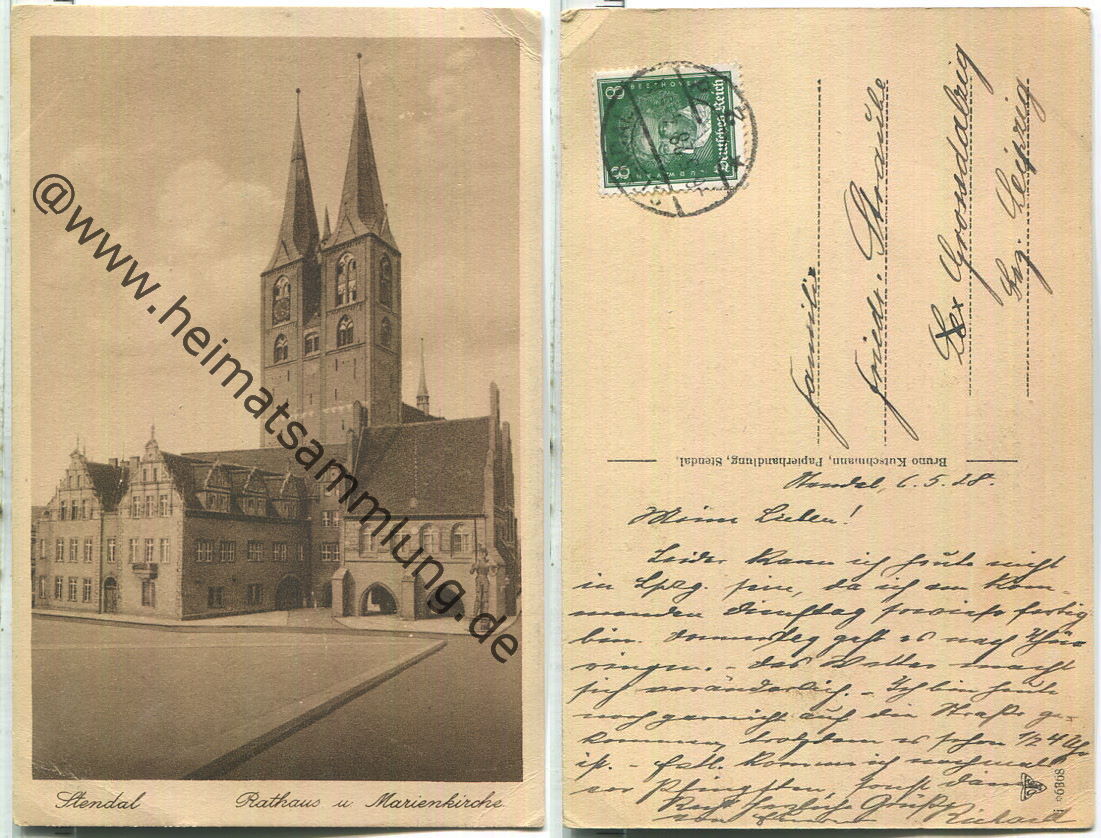 @www.heimatsammlung.de
Stendal Rathaus u. Marienkirche
8 BEETHOVEN 8
LUDWIG VAN
Deutsches Reich
Familie
Friedr. Strauche
Grossdalzig
Bzg. Leipzig
Bruno Kutschmann, Papierhandlung, Stendal.
Stendal, 6.5.28.
Meine Lieben!
Leider kann ich heute nicht
in Lpzg. sein, da ich am kom-
menden Dienstag sowieso fertig
bin. geht es nach Thü-
ringen. - Das Wetter macht
sich veränderlich. - Ich bin heute
noch garnicht auf die Straße ge-
kommen, trotzdem es schon 1/2 4 Uhr
ist. - Evtl. komme ich nochmal
vor Pfingsten, sonst dann
Recht herzliche Grüße
von Richard
6868